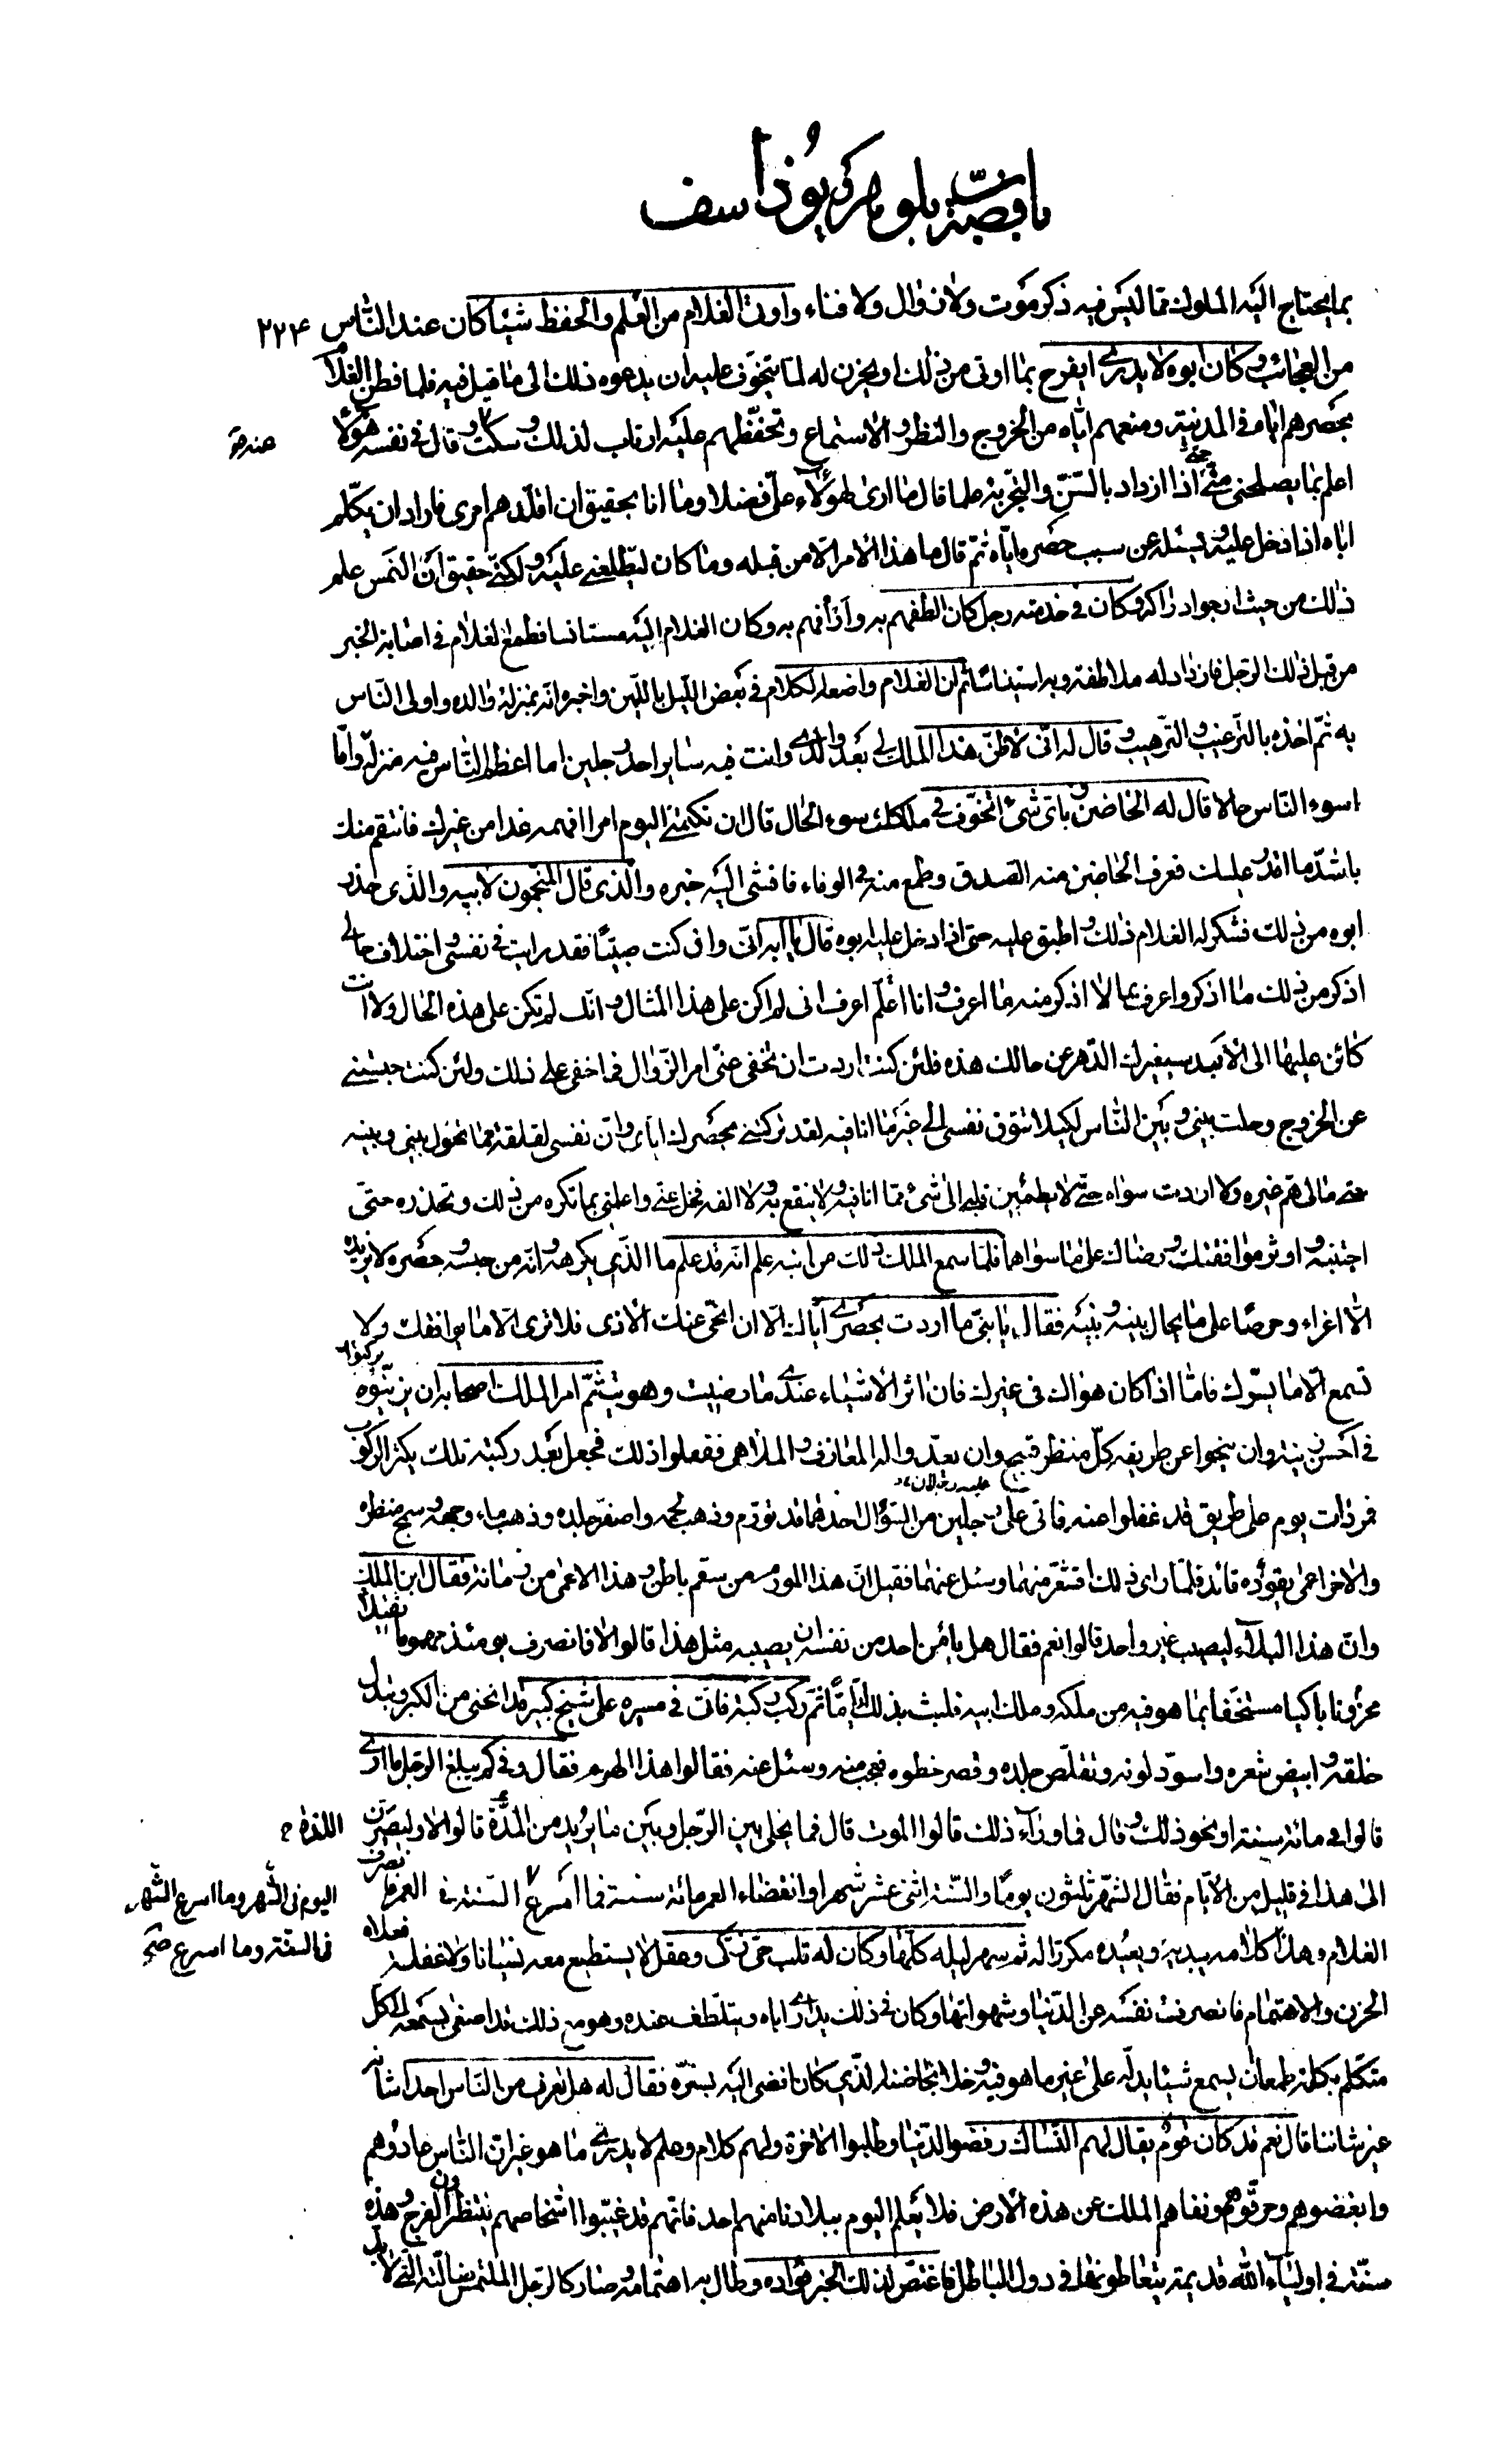 باقصة بلوهر و يوذاسف
٢٢٤
بما يحتاج اليه الملوك مما ليس فيه ذكر موت ولا زوال ولا فناء واوتى الغلام من العلم والحفظ شيئا كان عند الناس
من العجائب وكان ابوه لا يدرى ايفرح بما اوتى من ذلك او يحزن له لما يتخوف عليه ان يدعوه ذلك الى ما قيل فيه فلما فطن الغلام
بحصرهم اياه فى المدينة ومنعهم اياه من الخروج والنظر والاستماع وتحفظهم عليه ارتاب لذلك وسكت وقال فى نفسه هؤلاء
اعلم بما يصلحنى منى حتى اذا ازداد بالسن والتجربة علما قال ما ارى لهؤلاء على فضلا وما انا بحقيق ان اقلدهم امرى فاراد ان يكلم
اباه اذا دخل عليه ويسئله عن سبب حصره اياه ثم قال ما هذا الامر الا من قبله وما كان ليطلعنى عليه ولكنى حقيق ان التمس علم
ذلك من حيث ارجوا دراكه وكان فى خدمته رجل كان الطفهم به وارأفهم به وكان الغلام اليه مستانسا فطمع الغلام فى اصابة الخبر
من قبل ذلك الرجل فازداد له ملاطفة وبه استيناسا ثم ان الغلام واضعه الكلام فى بعض الليل باللين واخبره انه بمنزلة والده واولى الناس
به ثم اخذه بالترغيب والترهيب وقال له انى لاظن هذا الملك لى بعد والدى وانت فيه سائر احد رجلين اما اعظم الناس فيه منزلة واما
اسوء الناس حالا قال له الحاضن وباى شئ اتخوف فى ملكك سوء الحال قال ان تكتمنى اليوم امرا افهمه غدا من غيرك فانتقم منك
باشد ما اقدر عليك فعرف الحاضن منه الصدق وطمع منه فى الوفاء فافشى اليه خبره والذى قال المنجمون لابيه والذى حذر
ابوه من ذلك فشكر له الغلام ذلك واطبق عليه حتى اذا دخل عليه ابوه قال يا ابه انى وان كنت صبيا فقد رايت فى نفسى واختلاف حالى
اذكر من ذلك ما اذكر واعرف بما لا اذكر منه ما اعرف وانا اعلم اعرف انى لم اكن على هذا المثال وانك لم تكن على هذه الحال ولا انت
كائن عليها الى الابد سيغيرك الدهر عن حالك هذه فلئن كنت اردت ان تخفى عنى امر الزوال فما خفى على ذلك ولئن كنت حبستنى
عن الخروج وحلت بينى وبين الناس لكيلا تتوق نفسى الى غير ما انا فيه لقد تركتنى بحصرك اياى وان نفسى لقلقة مما تحول بينى وبينه
حتى مالى هم غيره ولا اردت سواه حتى لا يطمئن قلبى الى شئ مما انا فيه ولا ينتفع به ولا الفه فخل عنى واعلمنى بما تكره من ذلك وتحذره حتى
اجتنبه واوثر موافقتك ورضاك على ما سواهما فلما سمع الملك ذلك من ابنه علم انه قد علم ما الذى يكرهه وانه من حبسه وحصره لا يزيده
الا اغراء وحرصا على ما يحال بينه وبينه فقال يا بنى ما اردت بحصرى اياك الا ان انحى عنك الاذى فلا ترى الا ما يوافقك ولا
تسمع الا ما يسرك فاما اذا كان هواك فى غيرك فان اثر الاشياء عندى ما رضيت وهويت ثم امر الملك اصحابه ان يركبوه
فى احسن زينة وان ينحوا عن طريقه كل منظر قبيح وان يعدوا له المعازف والملاهى ففعلوا ذلك فجعل بعد ركبته تلك يكثر الركوب
فمر ذات يوم على طريق قد غفلوا عنه فاتى على رجلين من السؤال احدهما قد تورم وذهب لحمه واصفر جلده وذهب ماء وجهه وسمج منظره
والاخر اعمى يقوده قائد فلما راى ذلك اقشعر منهما وسئل عنهما فقيل ان هذا المورم من سقم باطن وهذا الاعمى من زمانة فقال ابن الملك
وان هذا البلاء ليصيب غير واحد قالوا نعم فقال هل يامن احد من نفسه ان يصيبه مثل هذا قالوا لا فانصرف يومئذ مهموما ثقيلا
محزونا باكيا مستخفا بما هو فيه من ملكه وملك ابيه فلبث بذلك اياما ثم ركب ركبة فاتى فى مسيره على شيخ كبير قد انحنى من الكبر وتبدل
خلقه وابيض شعره واسود لونه وتقلص جلده وقصر خطوه فعجب منه وسئل عنه فقالوا هذا الهرم فقال وفى كم يبلغ الرجل ما ارى
قالوا فى مائة سنة او نحو ذلك وقال فما وراء ذلك قالوا الموت قال فما يخلى بين الرجل وبين ما يريد من المدة قالوا لا وليصيرن
الى هذا فى قليل من الايام فقال الشهر ثلثون يوما والسنة اثنى عشر شهرا وانقضاء العمر مائة سنة فما اسرع السنة فى العمر فانصرف
الغلام وهذا كلامه يبديه ويعيده مكررا له ثم سهر ليله كلها وكان له قلب حى ذكى وعقل لا يستطيع معه نسيانا ولا غفلة فعلاه
الحزن والاهتمام فانصرفت نفسه عن الدنيا وشهواتها وكان فى ذلك يدارى اباه ويتلطف عنده وهو مع ذلك قد اصغى بسمعه الى كل
متكلم بكلمة طمعا ان يسمع شيئا يدله على غير ما هو فيه وخلا بحاضنه الذى كان افضى اليه بسره فقال له هل تعرف من الناس احدا شانه
غير شاننا قال نعم قد كان قوم يقال لهم النساك رفضوا الدنيا وطلبوا الاخرة ولهم كلام وعلم لا يدرى ما هو غير ان الناس عادوهم
وابغضوهم وحرقوهم ونفاهم الملك عن هذه الارض فلا يعلم اليوم ببلادنا منهم احد فانهم قد غيبوا اشخاصهم ينتظرون الفرج وهذه
سنة فى اولياء الله قديمة يتعاطونها فى دول الباطل فاغتص لذلك الخبر فؤاده وطال به اهتمامه وصار كالرجل الملتمس ضالته التى لا بد
اللذة
اليوم فى الشهر وما اسرع الشهر
فى السنة وما اسرع